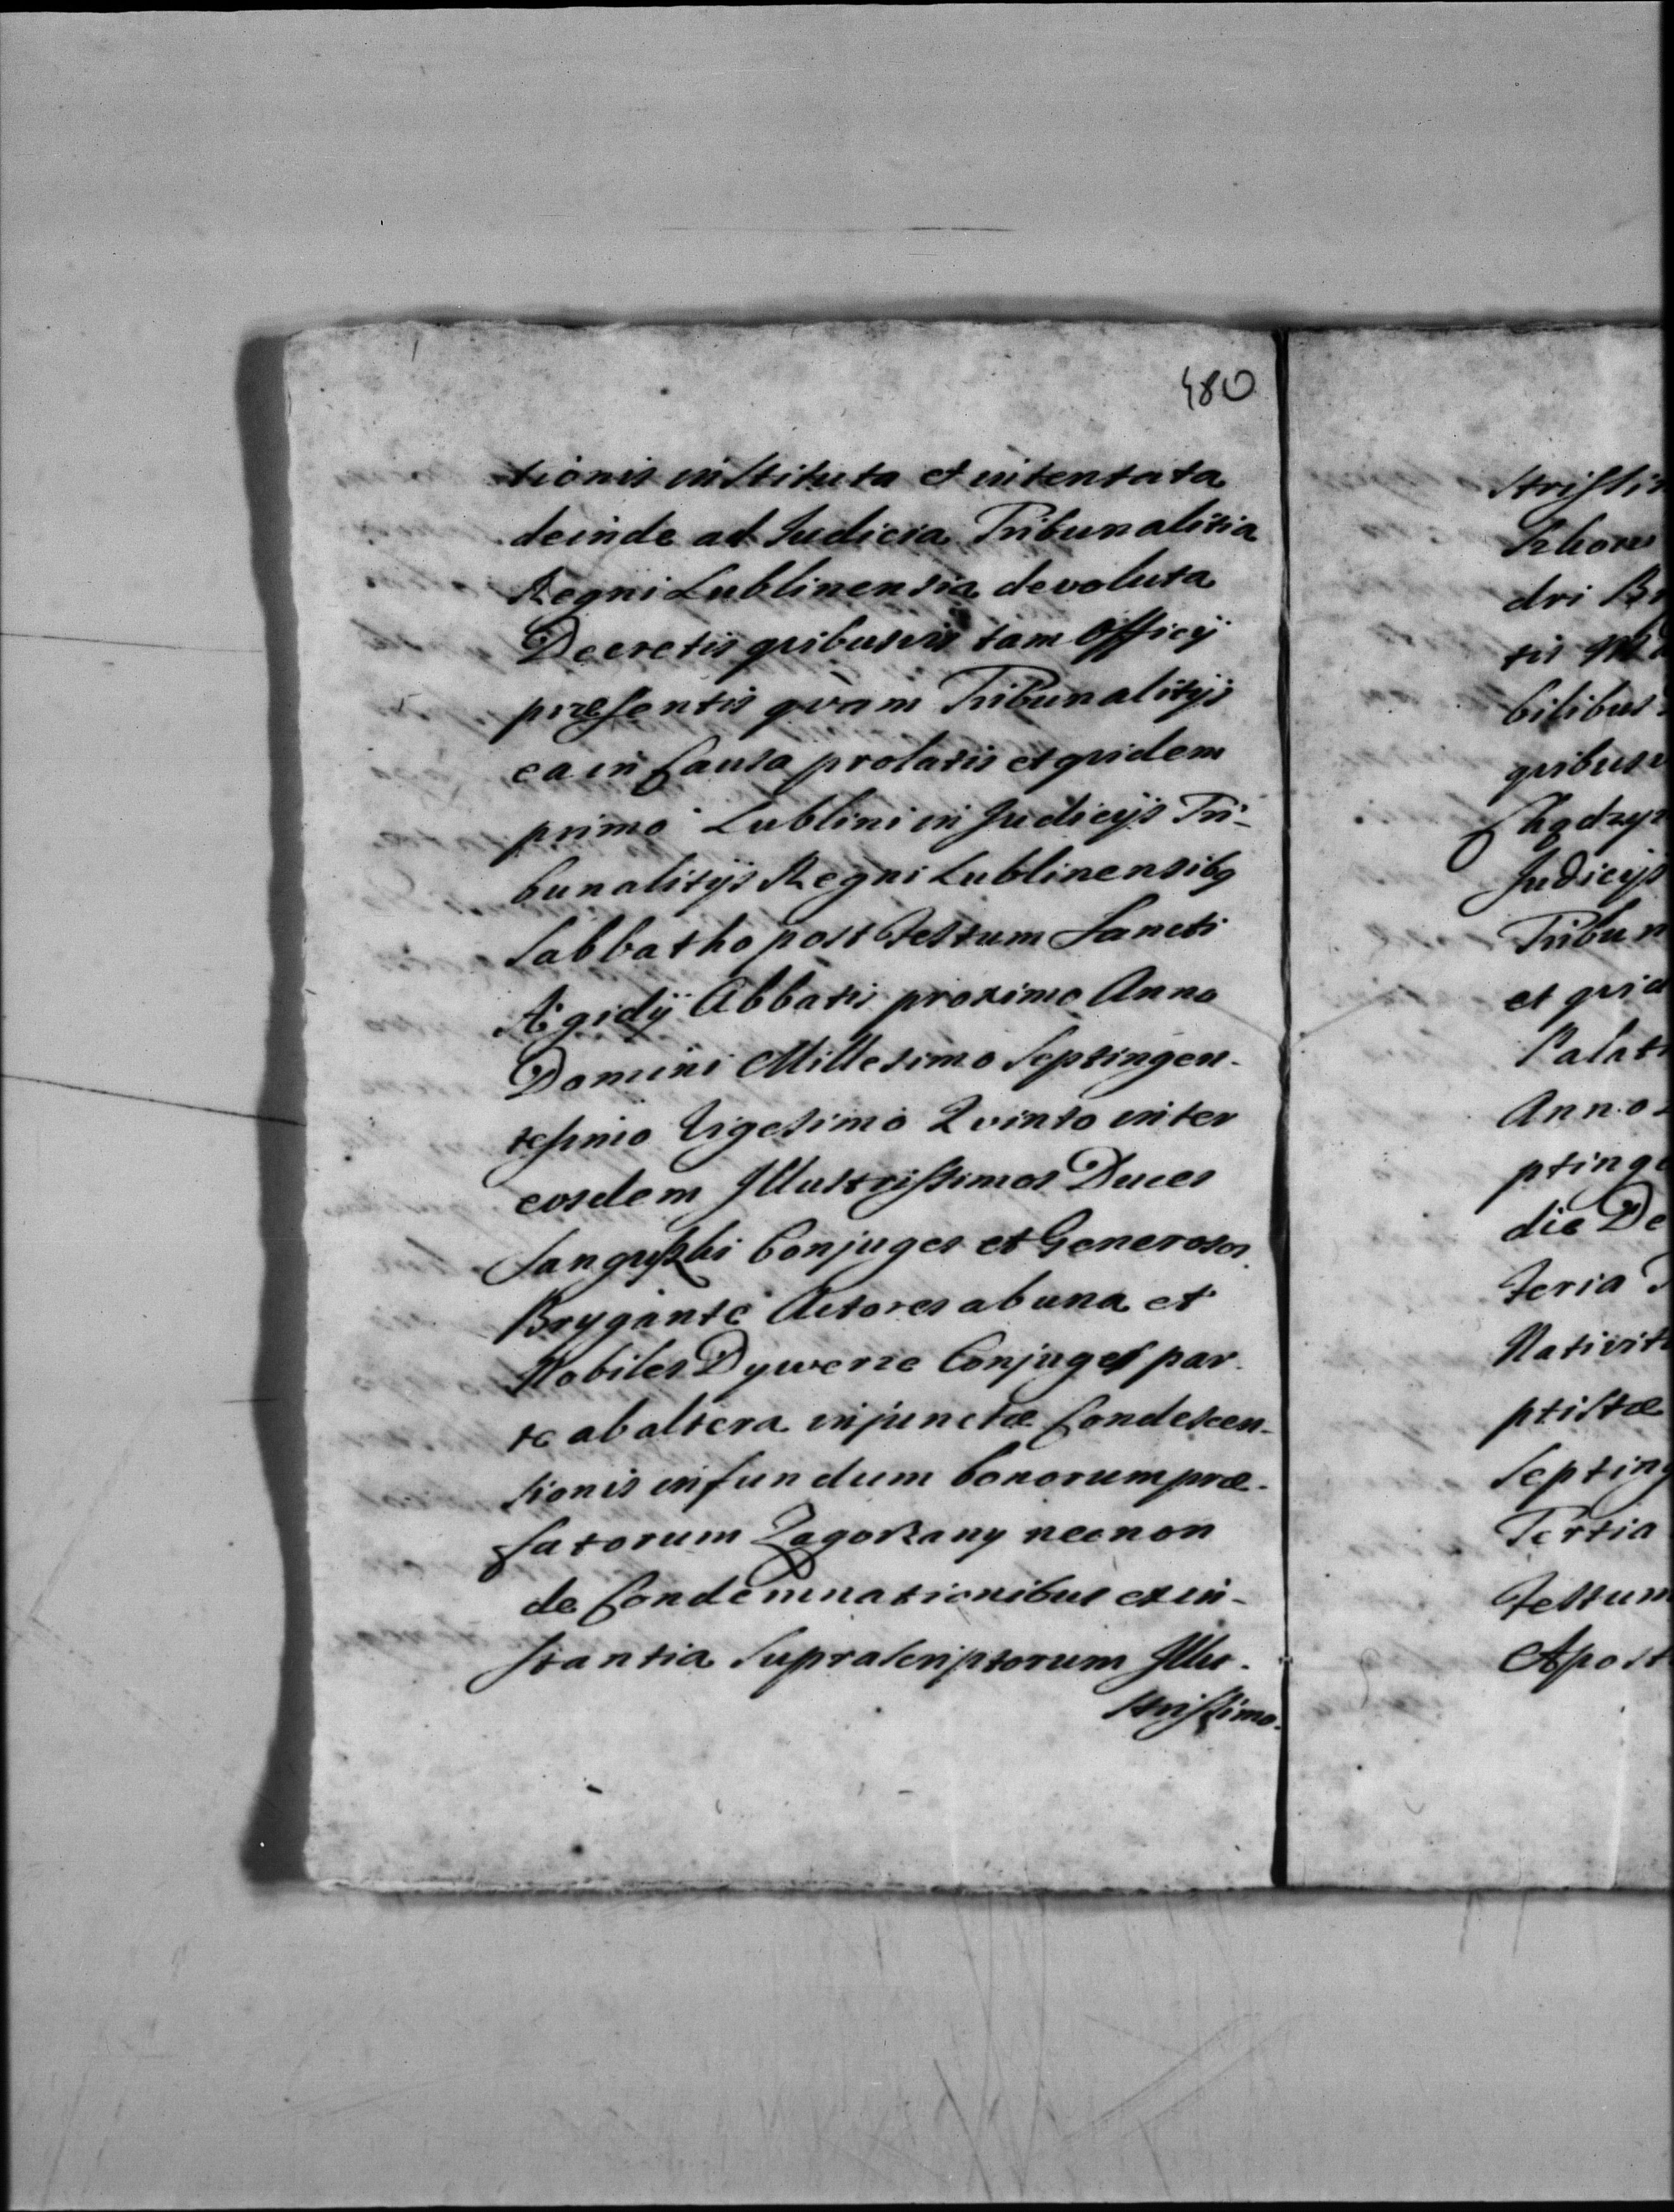 480
tionis instituta et intentata
deinde ad Judicia Tribunalitia
Regni Lublinensia devoluta
Decretis quibusvis tam Officÿ
præsentis quam Tribunalitÿs
ea in Causa prolatis et quidem
primo Lublini in Judicÿs Tri-
bunalitÿs Regni Lublinensibq
Sabbatho post Festum Sancti
Ægidÿ Abbatis proximo Anno
Domini Millesimo Septingen-
tesimo Vigesimo Quinto inter
eosdem Illustrissimos Duces
Sanguszki Conjuges et Generosos
Brygante Actores ab una et
Nobiles Dywerze Conjuges par-
te ab altera injunctæ Condescen-
sionis in fundum bonorum præ-
fatorum Zagorzany necnon
de Condemnationibus ex in-
stantia Suprascriptorum Illu-
strissimo-
strissi
dri Br
tis
bilibus
quibusv
Judicÿs
Tribun
et quid
Palati
Anno
ptinge
die De
Feria
Nativit
ptistæ
Septing
Tertia
Festum
Apost